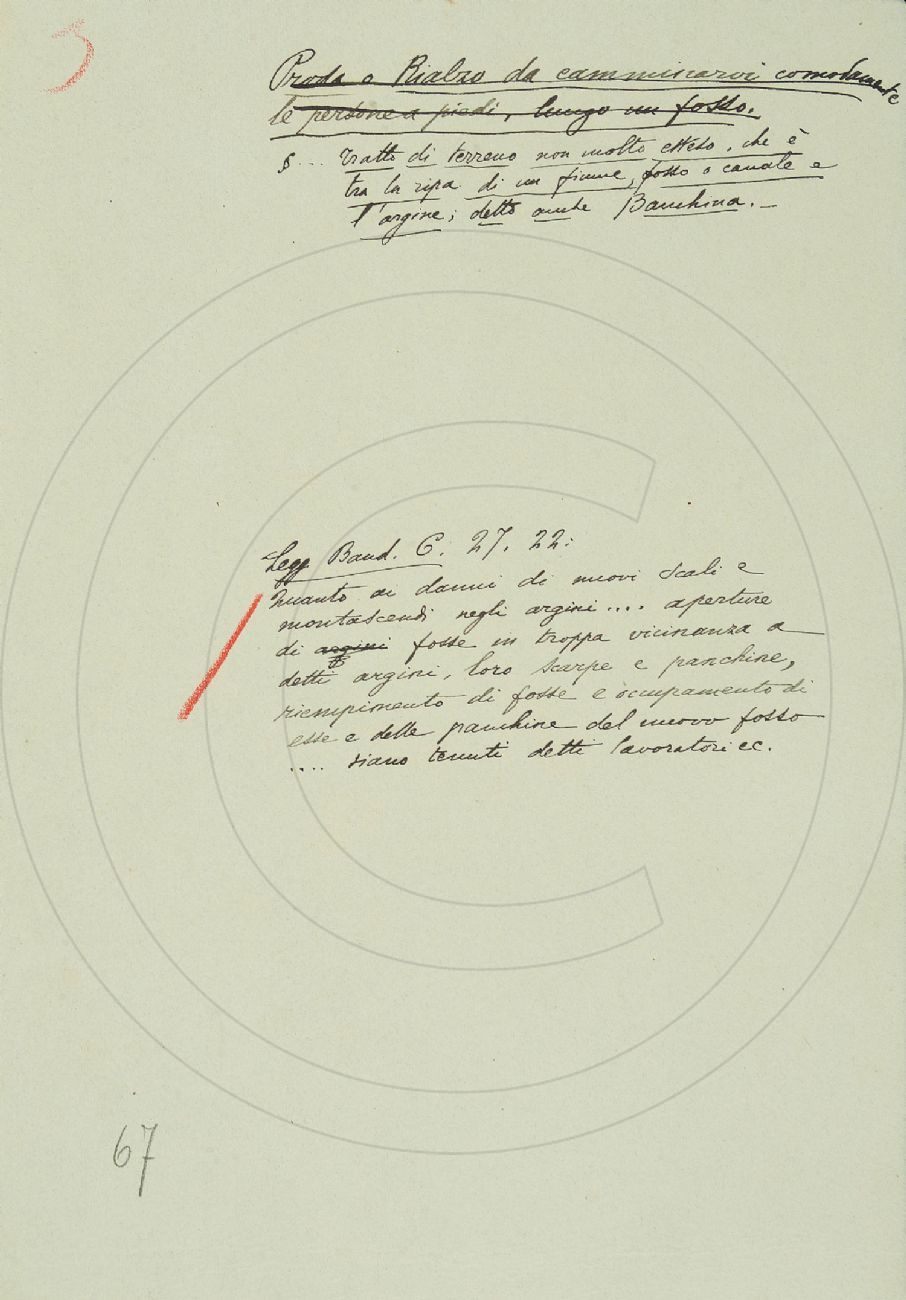 5
Proda o Rialzo da camminarvi comodamente
le persone a piedi, lungo un fosso.
§ ... Tratto di terreno non molto esteso, che è
tra la ripa di un fiume, fosso o canale e
l'argine; detto anche Banchina. –
Legg. Band. C. 27. 22:
Quanto ai danni di nuovi scali e
montascendi negli argini .... aperture
di argini fosse in troppa vicinanza a
detti argini, loro scarpe e panchine,
riempimento di fosse e occupamento di
esse e delle panchine del nuovo fosso
.... siano tenuti detti lavoratori ec.
67